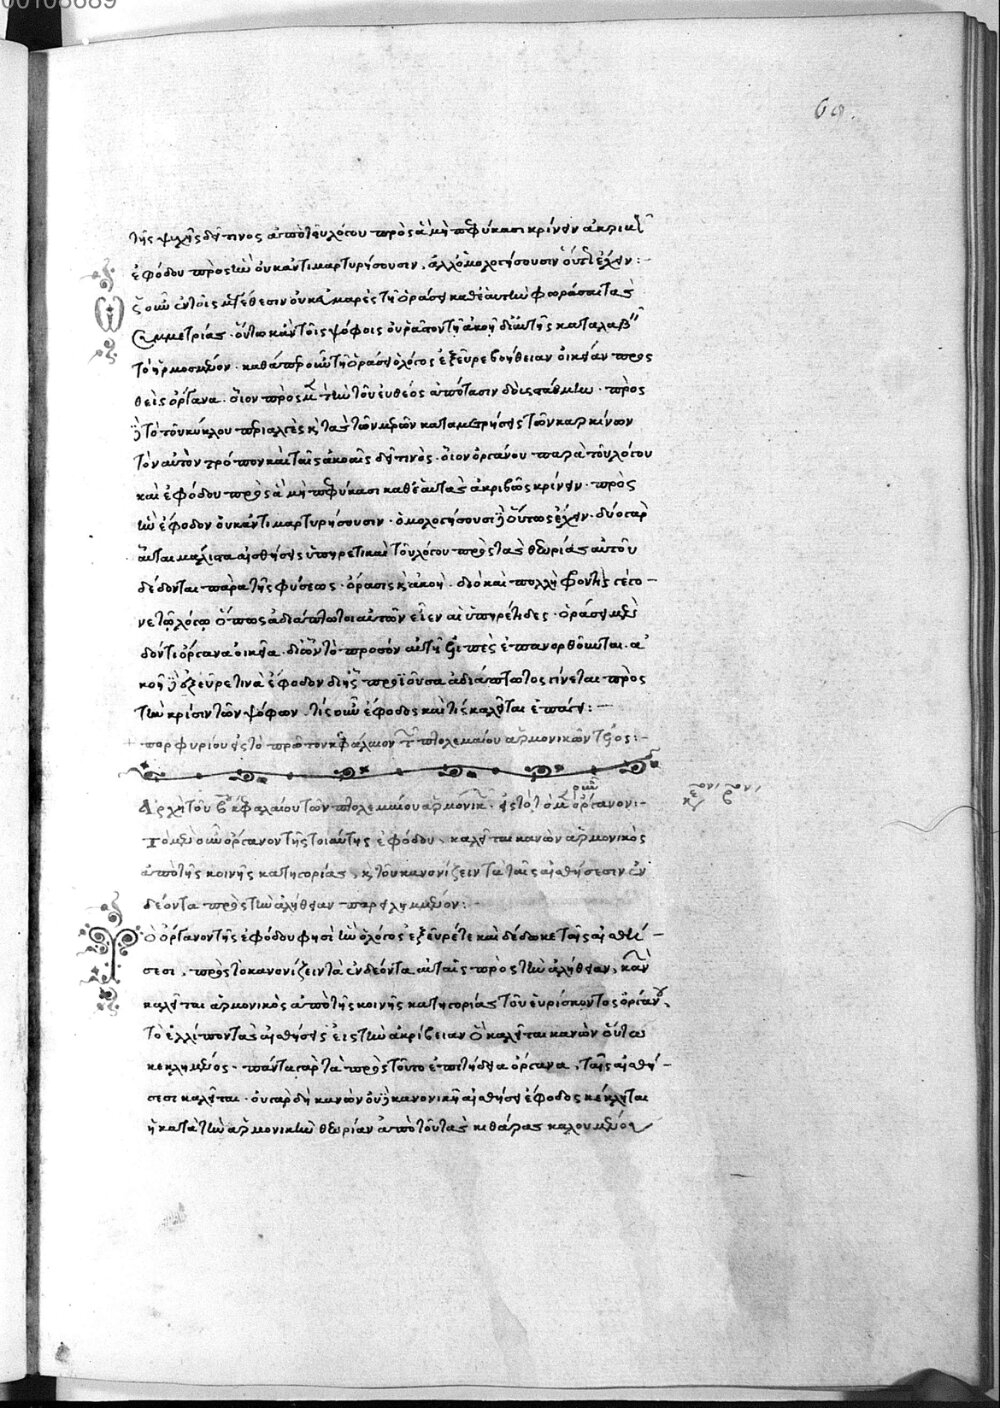 00108689
60.
τῆς ψυχῆς δεῖ τινος ἀπὸ τοῦ λόγου πρὸς ἃ μὴ πεφύκασι κρίνειν ἀκριβῶς
ἐφόδου πρὸς ἣν οὐκ ἀντιμαρτυρήσουσιν, ἀλλ' ὁμολογήσουσιν οὕτως ἔχειν :-
οὖν ἐν τοῖς μεγέθεσιν οὐκ εὐμαρὲς τῇ ὁράσει καθ' ἑαυτὴν φωράσαι τὰς
συμμετρίας· οὕτω κἀν τοῖς ψόφοις οὐ ῥᾷστον τῇ ἀκοῇ δι' αὐτῆς καταλαβεῖν
τὸ ἡρμοσμένον· καθάπερ οὖν τῇ ὁράσει ὁ λόγος ἐξεῦρε βοήθειαν οἰκείαν προς
θεὶς ὄργανα· οἷον πρὸς μὲν τὴν τοῦ εὐθέος ἀπότασιν δοὺς στάθμην· πρὸς
δὲ τὸ τοῦ κύκλου περιαλγὲς κỳ τὰς τῶν μερῶν καταμετρήσεις τῶν καρκίνων
τὸν αὐτὸν τρόπον καὶ ταῖς ἀκοαῖς δεῖ τινὸς· οἷον ὀργάνου παρὰ τοῦ λόγου
καὶ ἐφόδου πρὸς ἃ μὴ πεφύκασι καθ' ἑαυτὰς ἀκριβῶς κρίνειν· πρὸς
ἣν ἔφοδον οὐκ ἀντιμαρτυρήσουσιν· ὁμολογήσουσι δὲ οὕτως ἔχειν· δύο γὰρ
αὗται μάλιστα αἰσθήσεις ὑπηρετικαὶ τοῦ λόγου πρὸς τὰς θεωρίας αὐτοῦ
δέδονται παρὰ τῆς φύσεως· ὅρασις κ̀ ἀκοή· διὸ καὶ πολλὴ φροντὶς γέγο-
νε τῷ λόγῳ ὅπως ἀδιάπτωτοι αὐτῶν εἶεν αἱ ὑπηρέτιδες· ὁράσει μὲν
δόντι ὄργανα οἰκεῖα· δι' ὧν τὸ προσὸν αὐτῇ ἐλλιπὲς ἐπανορθοῦται· ἀ
κοῇ δὲ ἐξευρετινὰ ἔφοδον δι' ἧς προϊοῦσα ἀδιάπτωτος γίνεται πρὸς
τὴν κρίσιν τῶν ψόφων· τίς οὖν ἔφοδος καὶ τίς καλεῖται ἐπάγει :-
+ πορφυρίου εἰς τὸ πρῶτον κεφάλαιον τῶν πτολεμαίου ἁρμονικῶν τέλος :-
Ἀρχὴ τοῦ β κεφαλαίου τῶν πτολεμαίου ἁρμονικῶν εἰς τὸ τὸ μὲν οὖν ὄργανον :-
Τὸ μὲν οὖν ὄργανον τῆς τοιαύτης ἐφόδου, καλεῖται κανὼν ἁρμονικὸς
ἀπὸ τῆς κοινῆς κατηγορίας, κ̀ τοῦ κανονίζειν τὰ ταῖς αἰσθήσεσιν ἐν
δέοντα πρὸς τὴν ἀλήθειαν παρειλημμένον :-
Τὸ ὄργανον τῆς ἐφόδου φησὶν ἣν ὁ λόγος ἐξευρε τε καὶ δέδωκε ταῖς αἰσθή-
σεσι, πρὸς τὸ κανονίζειν τὰ ἐνδέοντα αὐταῖς πρὸς τὴν ἀλήθειαν, κανὼν
καλεῖται ἁρμονικὸς ἀπὸ τῆς κοινῆς κατηγορίας τοῦ εὑρίσκοντος ὀργάνου,
τὸ ἐλλίπον ταῖς αἰσθήσεσι εἰς τὴν ἀκρίβειαν ὃ καλεῖται κανὼν οὕτω
κεκλημένος· πάντα γὰρ τὰ πρὸς τοῦτο ἐπιτήδεια ὄργανα, ταῖς αἰσθή-
σεσι καλεῖται· οὐ γὰρ δὴ κανὼν οὐδὲ κανονικὴ αἰσθήσει ἔφοδος κέκληται
ἡ κατὰ τὴν ἁρμονικὴν θεωρίαν ἀπὸ τοῦ τὰς κιθάρας καλουμένου